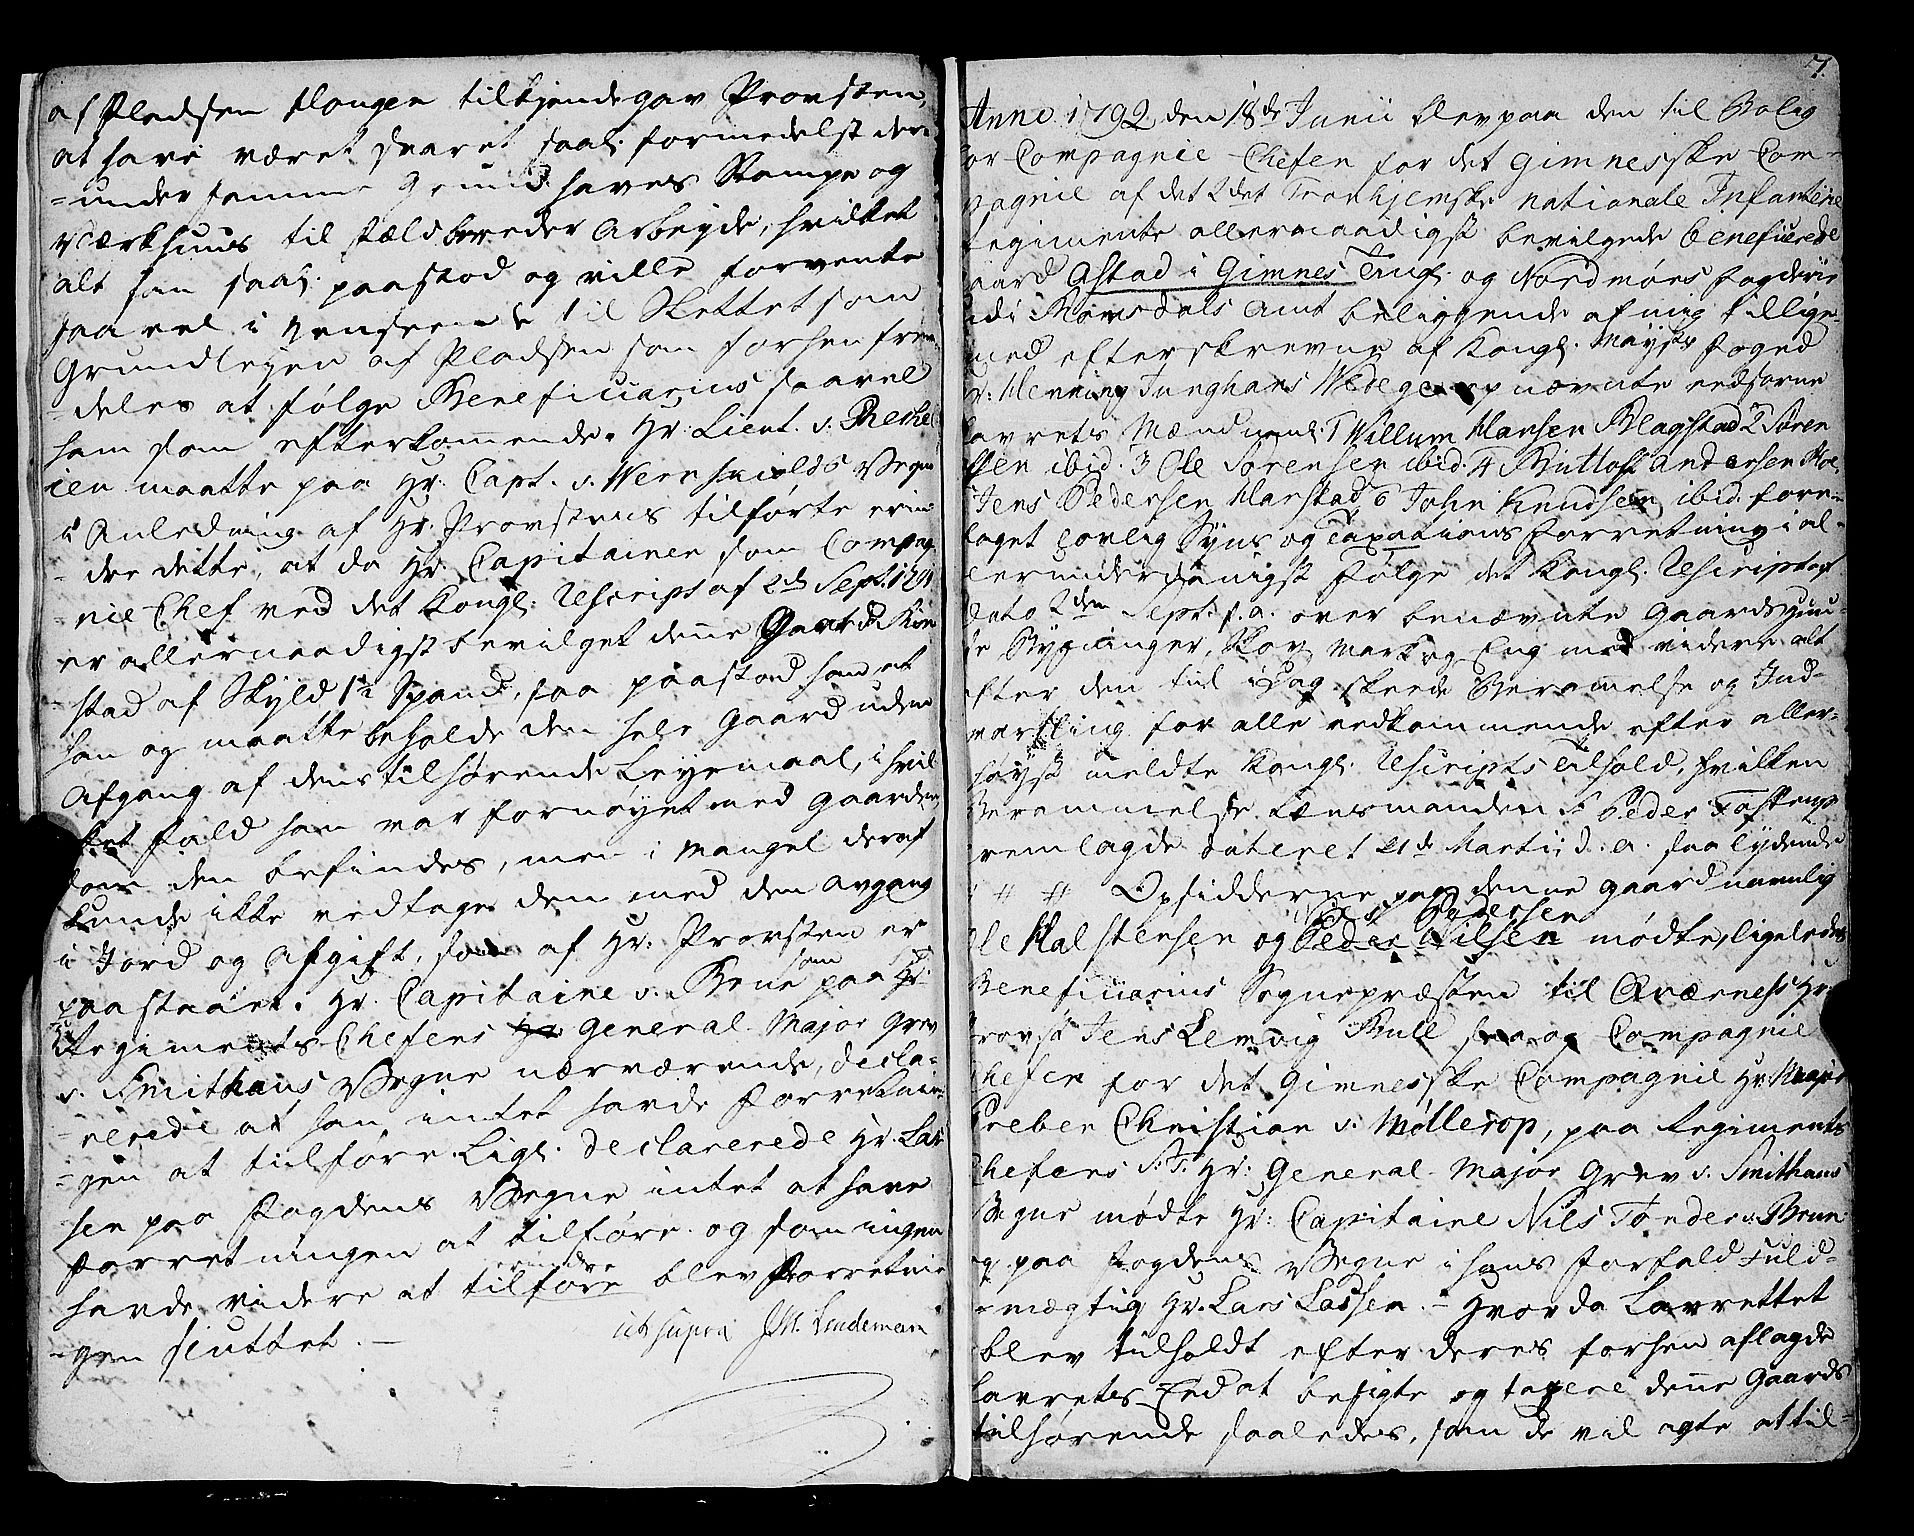 af Pladsen Hougen tilkjendegav Provsten,
at have været svaret saal. formedelst der
-under samme Grund haves Stampe og
Værkhuus til fældbereder Arbeyde, hvilket
alt han saal. paastod og ville forvente
saavel i Henseende til Slettet som
Grundleyen af Pladsen som forhen frem
-deles at følge Beneficiarius saavel
ham som efterkommende. Hr: Lieut. v.
maatte paa Hr: Capt. v. Wernskiolds Vegne
i Anledning af Hr: Provstens tilførte erin
-dre dette, at da Hr: Capitainen som Compag
nie-Chef ved det Kongl: Rescript af 2de Sept. 1791
er allernaadigst bevilget denne Gaard
stad af Skyld 1½ Spand, saa paastod han at
han og maatte beholde den hele Gaard uden
Afgang af dens tilhørende Leyemaal, i hvil
-ket fald han var fornøyet med Gaarden
som den befindes, men i Mangel deraf
kunde ikke vedtage den med den Avgang
i Jord og Afgift, som af Hr: Provsten er
paastaaet. Hr. Capitaine v. Brun som paa Hr:
Regiments-Chefens General-Major Grev
v. Smithaus Vegne nærværende, decla-
-rerede at han intet havde Forretnin-
-gen at tilføre. Ligl. declarerede Hr. Las
sen paa Fogdens Vegne intet at have
Forretningen at tilføre. og som ingen
havde videre at erindre tilføre blev Forretnin
-gen sluttet. —
ut supra JM. Lindeman
7.
Anno 1792 den 18de Junii blev paa den til Bolig
for Compagnie-Chefen for det Gimnesske Com-
pagnie af det 2det Tronhjemske nationale Infanterie
Regimente allernaadigst bevilgede beneficerede
Gaard Astad i Gimnes Tingl. og Nordmørs Fogderie
udi Romsdals Amt beliggende af mig tillige-
med efterskrevne af Kongl. Mayts Foged
Hr: Henning Junghans Wedege opnævnte eedsorne
Lavrets Mænd navnl. 1 Willum Hansen Blagstad 2 Søren
Olsen ibid. 3 Ole Sørensen ibid. 4 Buttolf Andersen Roe,
5 Jens Pedersen Harstad 6 John Knudsen ibid. fore-
taget lovlig Syns og Taxations Forretning i al-
lerunderdanigst Følge det Kongl. Rescript af
Dato 2den Sept: f. a. over benævnte Gaards Huu-
se Bygninger, Skov, Mark og Eng med videre alt
efter den til i Dag skeede Berammelse og Ind-
varsling for alle vedkommende efter aller-
høyst meldte Kongl. Rescripts Tilhold, hvilken
Berammelse Lænsmanden Sr Peder
fremlagde dateret 21de Martii d. a. saa lydende
# # # Opsidderne paa denne Gaard navnlig
Ole Halstensen og Peder Nilsen Pedersen mødte, ligeledes
Beneficiarius Sognepræsten til Qværness Hr:
Provst Jens Lemvig Bull saa og Compagnie
Chefen for det Gimnesske Compagnie Hr. Major
Preben Christian v. Møllerop, paa Regiments
Chefens S:T: Hr: General-Major Grev v. Smithaus
Vegne mødte Hr: Capitaine Nils Tønder v. Brun
og paa Fogdens Vegne i hans Forfald Fuld-
-mægtig Hr. Lars Lassen. – Hvor da Lavrettet
blev tilholdt efter deres forhen aflagde
Lavrets Eed at besigte og taxere denne Gaards
tilhørende saaledes, som de vil agte at til-